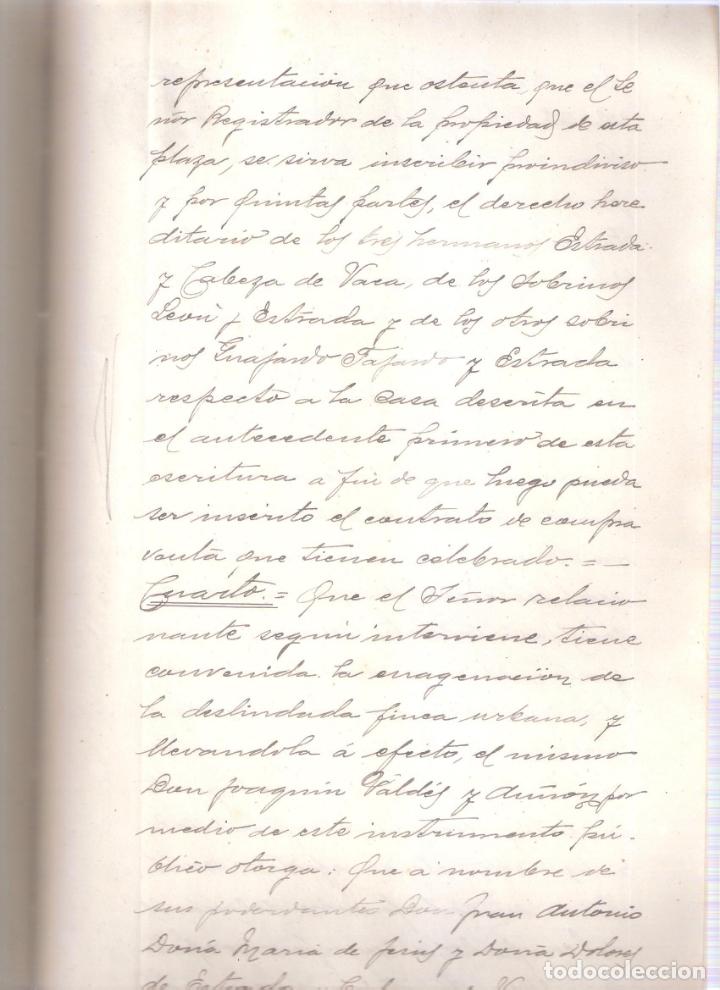 representación que ostenta, que el Se
ñor Registrador de la propiedad de esta
plaza, se sirva inscribir proindiviso
y por quintas partes, el derecho here
ditario de los tres hermanos Estrada
y Cabeza de Vaca, de los sobrinos
León y Estrada y de los otros sobri
nos Guajardo Fajardo y Estrada
respecto a la casa descrita en
el antecedente primero de esta
escritura a fin de que luego pueda
ser inscrito el contrato de compra
venta que tienen celebrado. = —
Cuarto. = Que el Señor relacio
nante según interviene, tiene
convenida la enagenación de
la deslindada finca urbana, y
llevandola á efecto, el mismo
Don Joaquín Valdés y Auñón por
medio de este instrumento pú-
blico otorga: Que a nombre de
sus poderdantes Don Juan Antonio
Doña Maria de Jesús y Doña Dolores
de Estrada y Cabeza de Vaca
todocoleccion.net